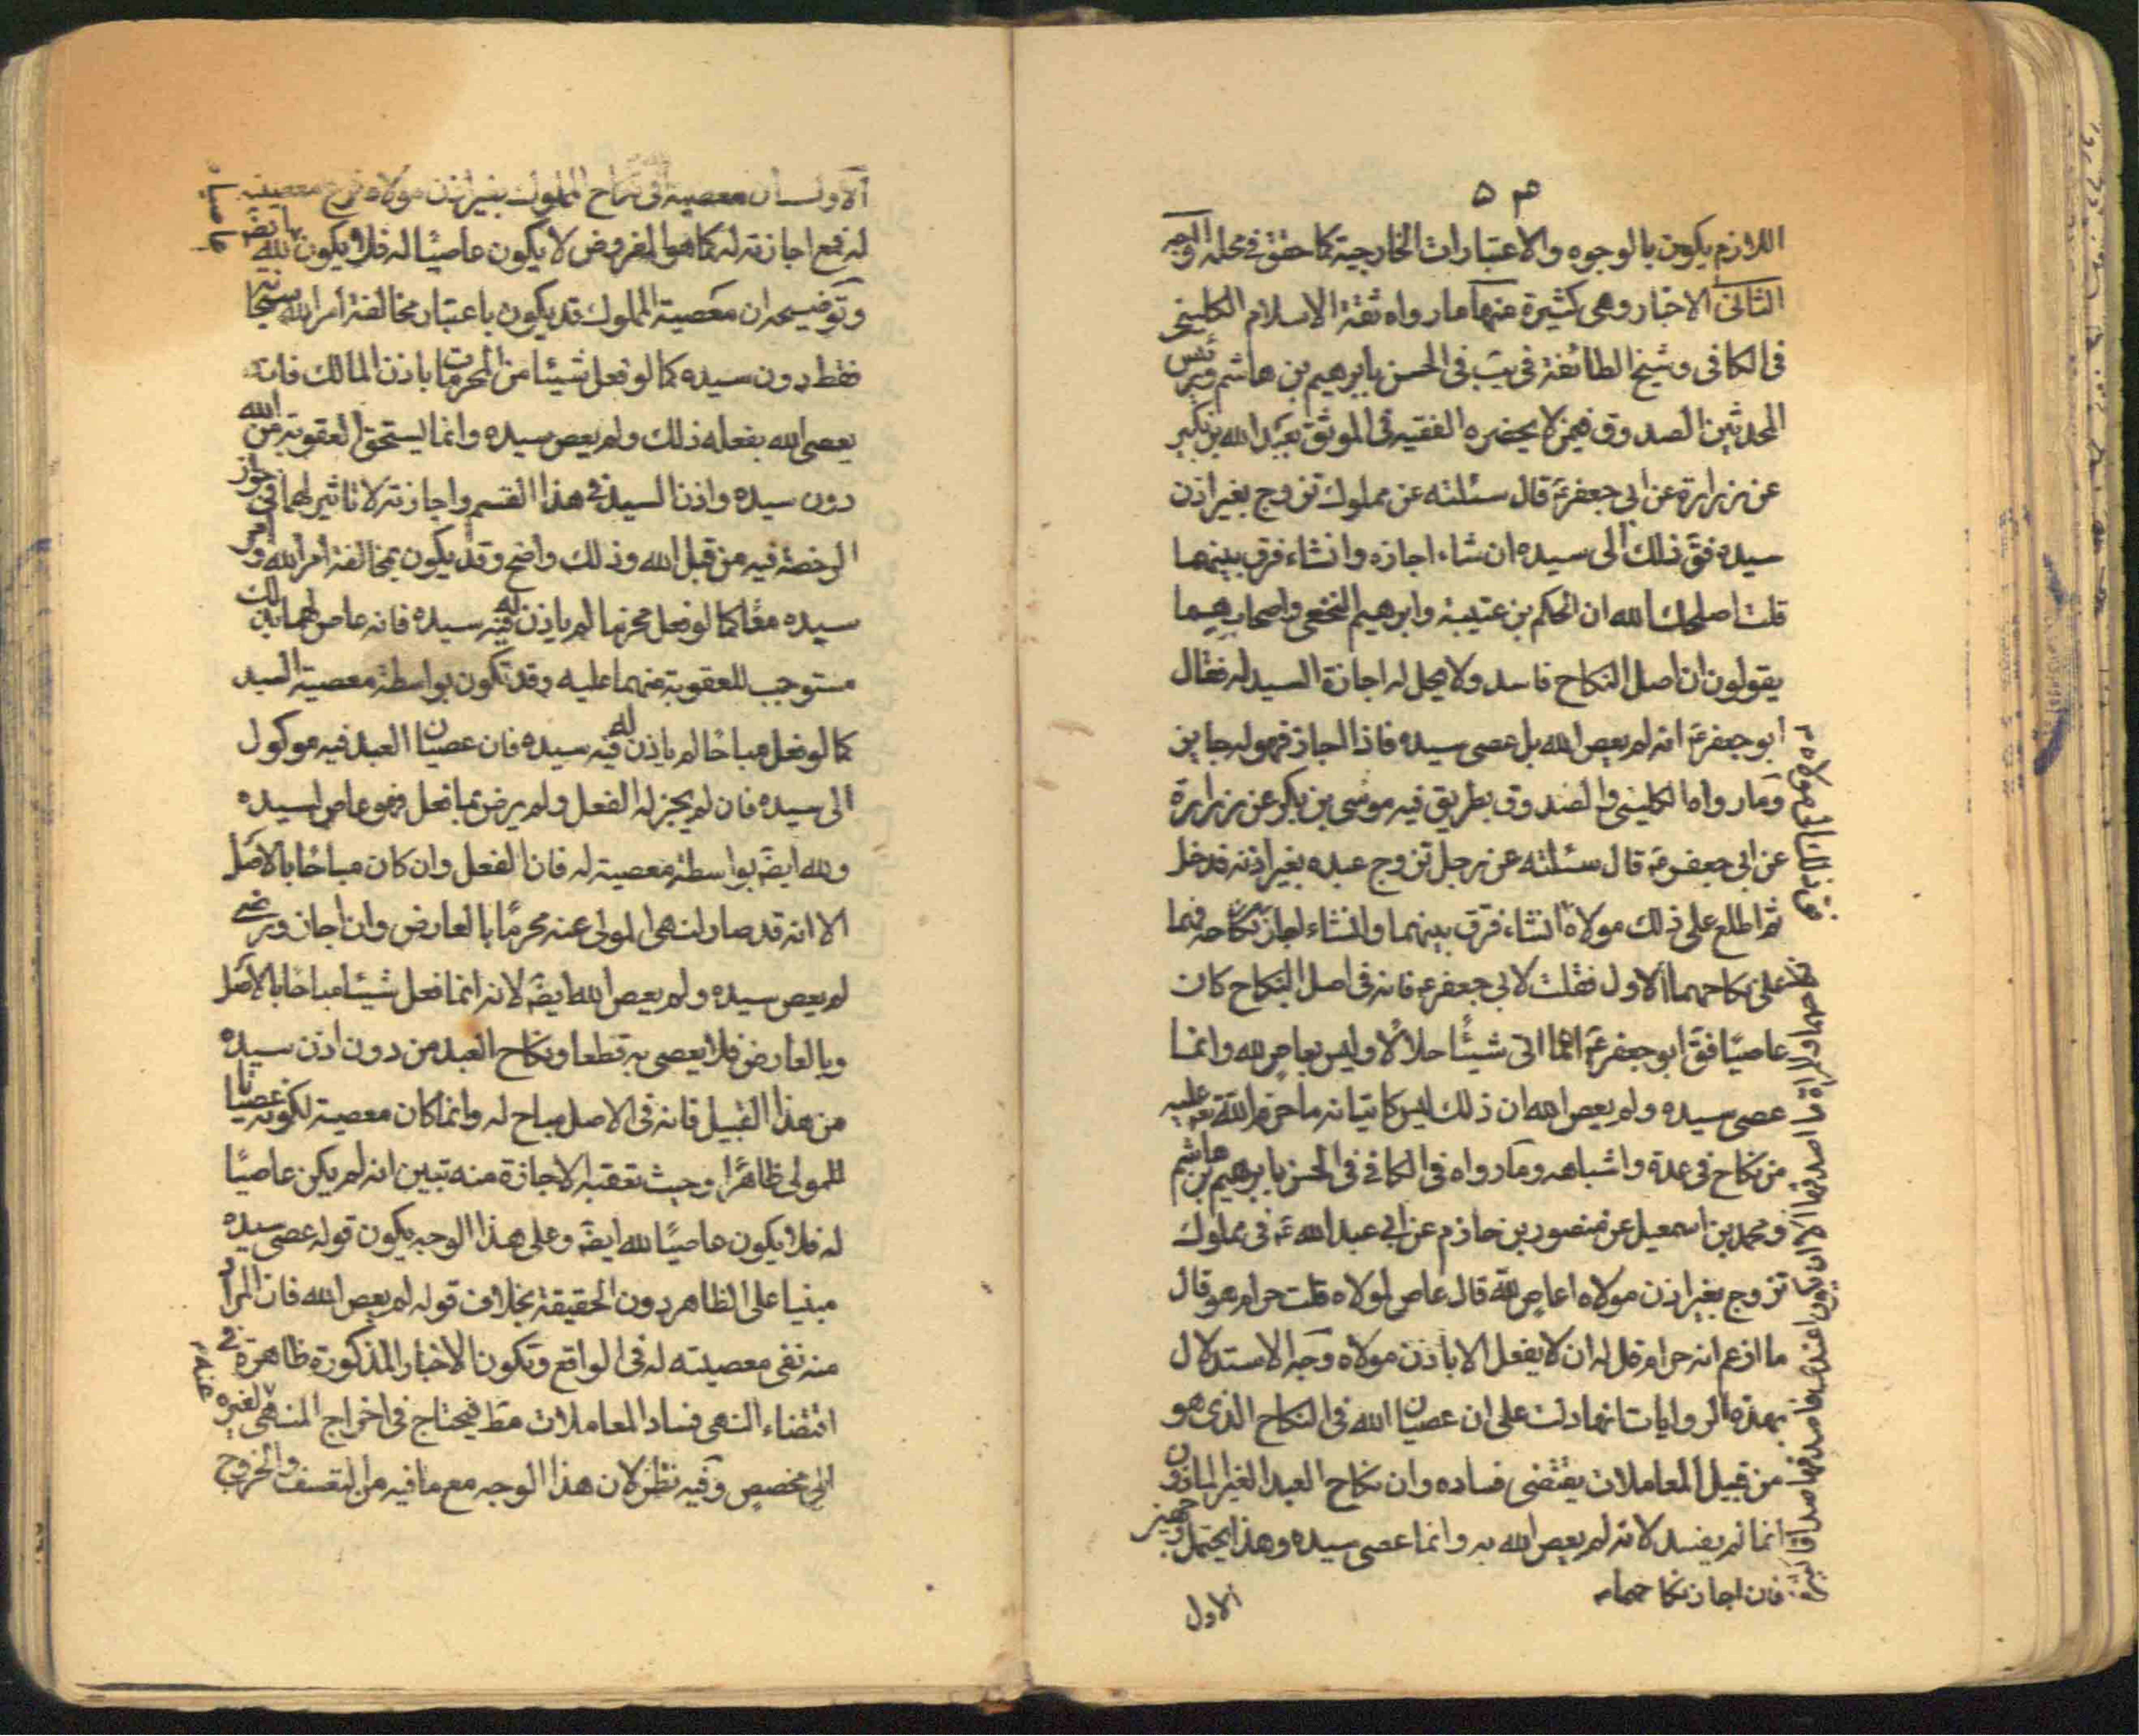 اللازم يكون بالوجوه والاعتبارات الخارجية كما حقق في محله والوجه
الثاني الاخبار وهى كثيرة منها ما رواه ثقة الاسلام الكلينى
فى الكافى وشيخ الطائفة فى يب فى الحسن بابرهيم بن هاشم ورئيس
المحدثين الصدوق فيمن لا يحضره الفقيه فى الموثق بعبد الله بن بكير
عن زرارة عن ابى جعفر ع قال سئلته عن مملوك تزوج بغير اذن
سيده فق ذلك الى سيده ان شاء اجازه وانشاء فرق بينهما
قلت اصلحك الله ان الحكم بن عتيبة وابرهيم النخعى واصحابهما
يقولون ان اصل النكاح فاسد ولا يحل له اجازة السيد له فقال
ابو جعفر ع انه لم يعص الله بل عصى سيده فاذا اجاز فهو له جايز
وما رواه الكلينى والصدوق بطريق فيه موسى بن بكر عن زرارة
عن ابى جعفر ع قال سئلته عن رجل تزوج عبده بغير اذنه فدخل
ثم اطلع على ذلك مولاه انشاء فرق بينهما وانشاء اجاز نكاحه فهما
على نكاحهما الاول فقلت لابى جعفر ع فانه فى اصل النكاح كان
عاصيًا فق ابو جعفر ع انما اتى شيئًا حلالًا وليس بعاص لله وانما
عصى سيده ولم يعص الله ان ذلك ليس كاتيانه ما حرم الله عليه
من نكاح فى عدة واشباهه وما رواه فى الكافى فى الحسن بابرهيم بن هاشم
ومحمد بن اسمعيل عن منصور بن حازم عن ابى عبد الله ع فى مملوك
تزوج بغير اذن مولاه اعاص لله قال عاص لمولاه قلت حرام هو قال
ما ازعم انه حرام قل له ان لا يفعل الا باذن مولاه وجه الاستدلال
بهذه الروايات انها دلت على ان عصيان الله فى النكاح الذى هو
من قبيل المعاملات يقتضى فساده وان نكاح العبد الغير الماذون
انما لم يفسد لانه لم يعص الله به وانما عصى سيده وهذا يحتمل وجهين
فان اجاز نكاحهما
الاول
الاول ان معصية فى نكاح المملوك بغير اذن مولاه فرع معصيته
له فمع اجازته له كما هو المفروض لا يكون عاصيًا له فلا يكون لله ايضا
عاصيا
وتوضيحه ان معصية المملوك قد يكون باعتبار مخالفة امر الله سبحانه
فقط دون سيده كما لو فعل شيئا من المحرمات باذن المالك فانه
يعصى الله بفعله ذلك ولم يعص سيده وانما يستحق العقوبة من الله
دون سيده واذن السيد فى هذا القسم واجازته لا تاثير لهما فى جواز
الرخصة فيه من قبل الله وذلك واضح وقد يكون بمخالفة امر الله وامر
سيده معًا كما لو فعل محرمًا لم ياذن له فيه سيده فانه عاص لهما بذلك
مستوجب للعقوبة منهما عليه وقد تكون بواسطة معصية السيد
كما لو فعل مباحًا لم ياذن له فيه سيده فان عصيان العبد فيه موكول
الى سيده فان لم يجز له الفعل ولم يرض بما فعل فهو عاص لسيده
ولله ايضً بواسطة معصية له فان الفعل وان كان مباحًا بالاصل
الا انه قد صار لنهى المولى عنه محرمًا بالعارض وان اجاز ورضى
لم يعص سيده ولم يعص الله ايضً لانه انما فعل شيئًا مباحًا بالاصل
وبالعارض فلا يعصى به قطعا ونكاح العبد من دون اذن سيده
من هذا القبيل فانه فى الاصل مباح له وانما كان معصية لكونه عصيانا
للمولى ظاهرًا وحيث تعقبه الاجازة منه تبين انه لم يكن عاصيًا
له فلا يكون عاصيًا لله ايضً وعلى هذا الوجه يكون قوله عصى سيده
مبنيا على الظاهر دون الحقيقة بخلاف قوله لم يعص الله فان المراد
منه نفى معصيته له فى الواقع وتكون الاخبار المذكورة ظاهرة فى
اقتضاء النهى فساد المعاملات مط فيحتاج فى اخراج المنهى لغيره
عنه
الى مخصص وفيه نظر لان هذا الوجه مع ما فيه من التعسف والخروج